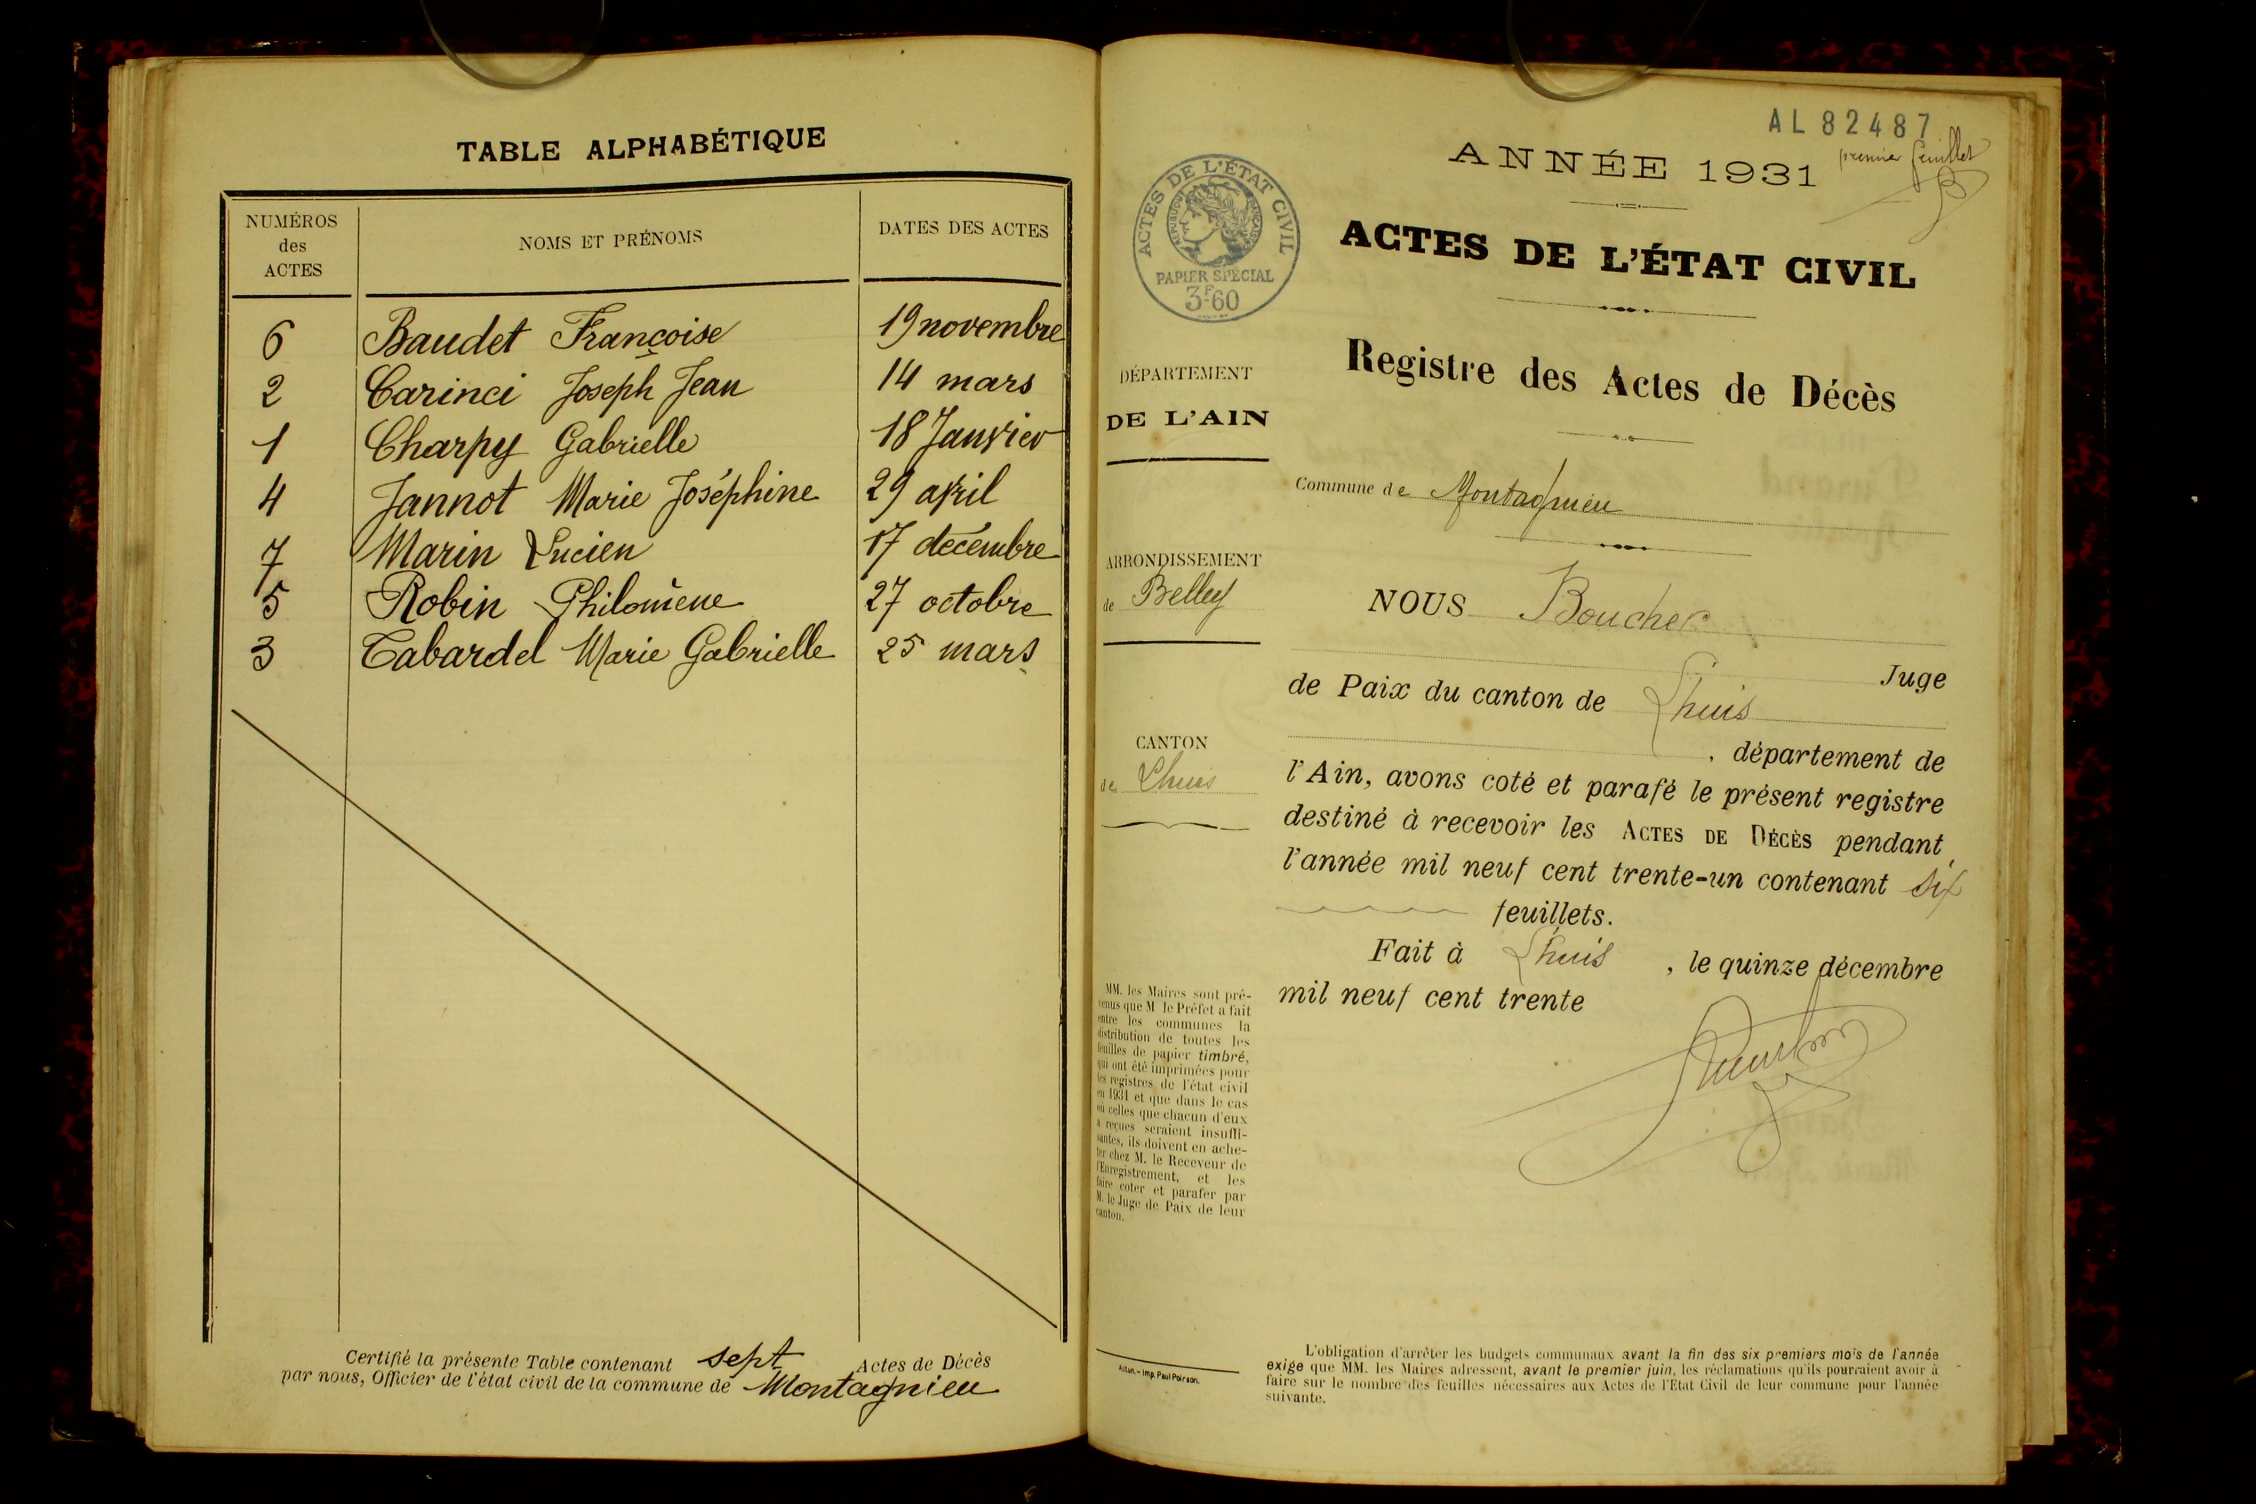 TABLE ALPHABÉTIQUE
NUMÉROS des ACTES
NOMS ET PRÉNOMS
DATES DES ACTES
6 Baudet Françoise 19 novembre
2 Carinci Joseph Jean 14 mars
1 Charpy Gabrielle 18 Janvier
4 Jannot Marie Joséphine 29 avril
7 Marin Lucien 17 décembre
5 Robin Philomène 27 octobre
3 Tabardel Marie Gabrielle 25 mars
Certifié la présente Table contenant sept Actes de Décès
par nous, Officier de l'état civil de la commune de Montagnieu
AL 82487
premier feuillet
ANNÉE 1931
ACTES DE L'ÉTAT CIVIL
PAPIER SPÉCIAL
3F.60
ACTES DE L'ÉTAT CIVIL
Registre des Actes de Décès
DÉPARTEMENT
DE L'AIN
Commune de Montagnieu
ARRONDISSEMENT
de Belley
NOUS Boucher
Juge
de Paix du canton de Lhuis
CANTON
de Lhuis
, département de
l'Ain, avons coté et parafé le présent registre
destiné à recevoir les ACTES DE DÉCÈS pendant
l'année mil neuf cent trente-un contenant six
feuillets.
Fait à Lhuis, le quinze décembre
mil neuf cent trente
MM. les Maires sont pré-
venus que M le Préfet a fait
entre les communes la
distribution de toutes les
feuilles de papier timbré,
qui ont été imprimées pour
les registres de l'état civil
en 1931 et que dans le cas
où celles que chacun d'eux
a reçues seraient insuffi-
santes, ils doivent en ache-
ter chez M. le Receveur de
l'Enregistrement, et les
faire coter et parafer par
M. le Juge de Paix de leur
canton.
Autun. - Imp. Paul Poirson.
L'obligation d'arrêter les budgets communaux avant la fin des six premiers mois de l'année
exige que MM. les Maires adressent, avant le premier juin, les réclamations qu'ils pourraient avoir à
faire sur le nombre des feuilles nécessaires aux Actes de l'Etat Civil de leur commune pour l'année
suivante.